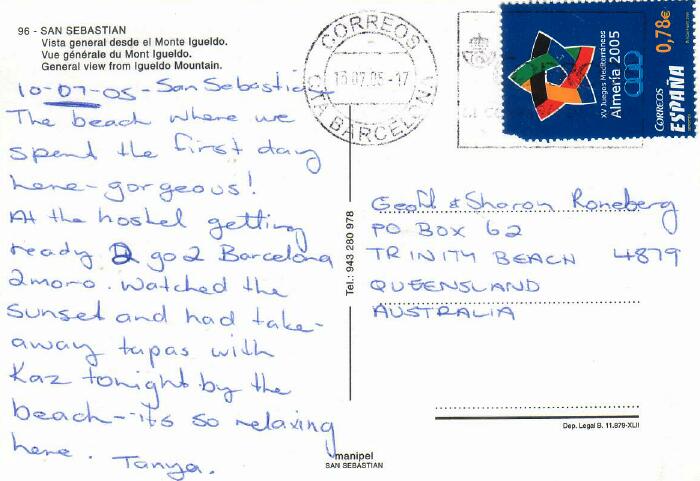 96 - SAN SEBASTIAN
Vista general desde el Monte Igueldo.
Vue générale du Mont Igueldo.
General view from Igueldo Mountain.
10-07-05-San Sebastian
The beach where we
spent the first day
here-gorgeous!
At the hostel getting
ready 2 go 2 Barcelona
2moro. Watched the
sunset and had take-
away tapas with
Kaz tonight by the
beach-it's so relaxing
here. Tanya.
Tel.: 943 280 978
manipel
SAN SEBASTIAN
CORREOS
07.05-17
BARCELONA
XV Juegos Mediterráneos
Almería 2005
0,78€
CORREOS
ESPAÑA
Geoff & Sharon Roneberg
PO BOX 62
TRINITY BEACH 4879
QUEENSLAND
AUSTRALIA
Dep. Legal B. 11.879-XLII